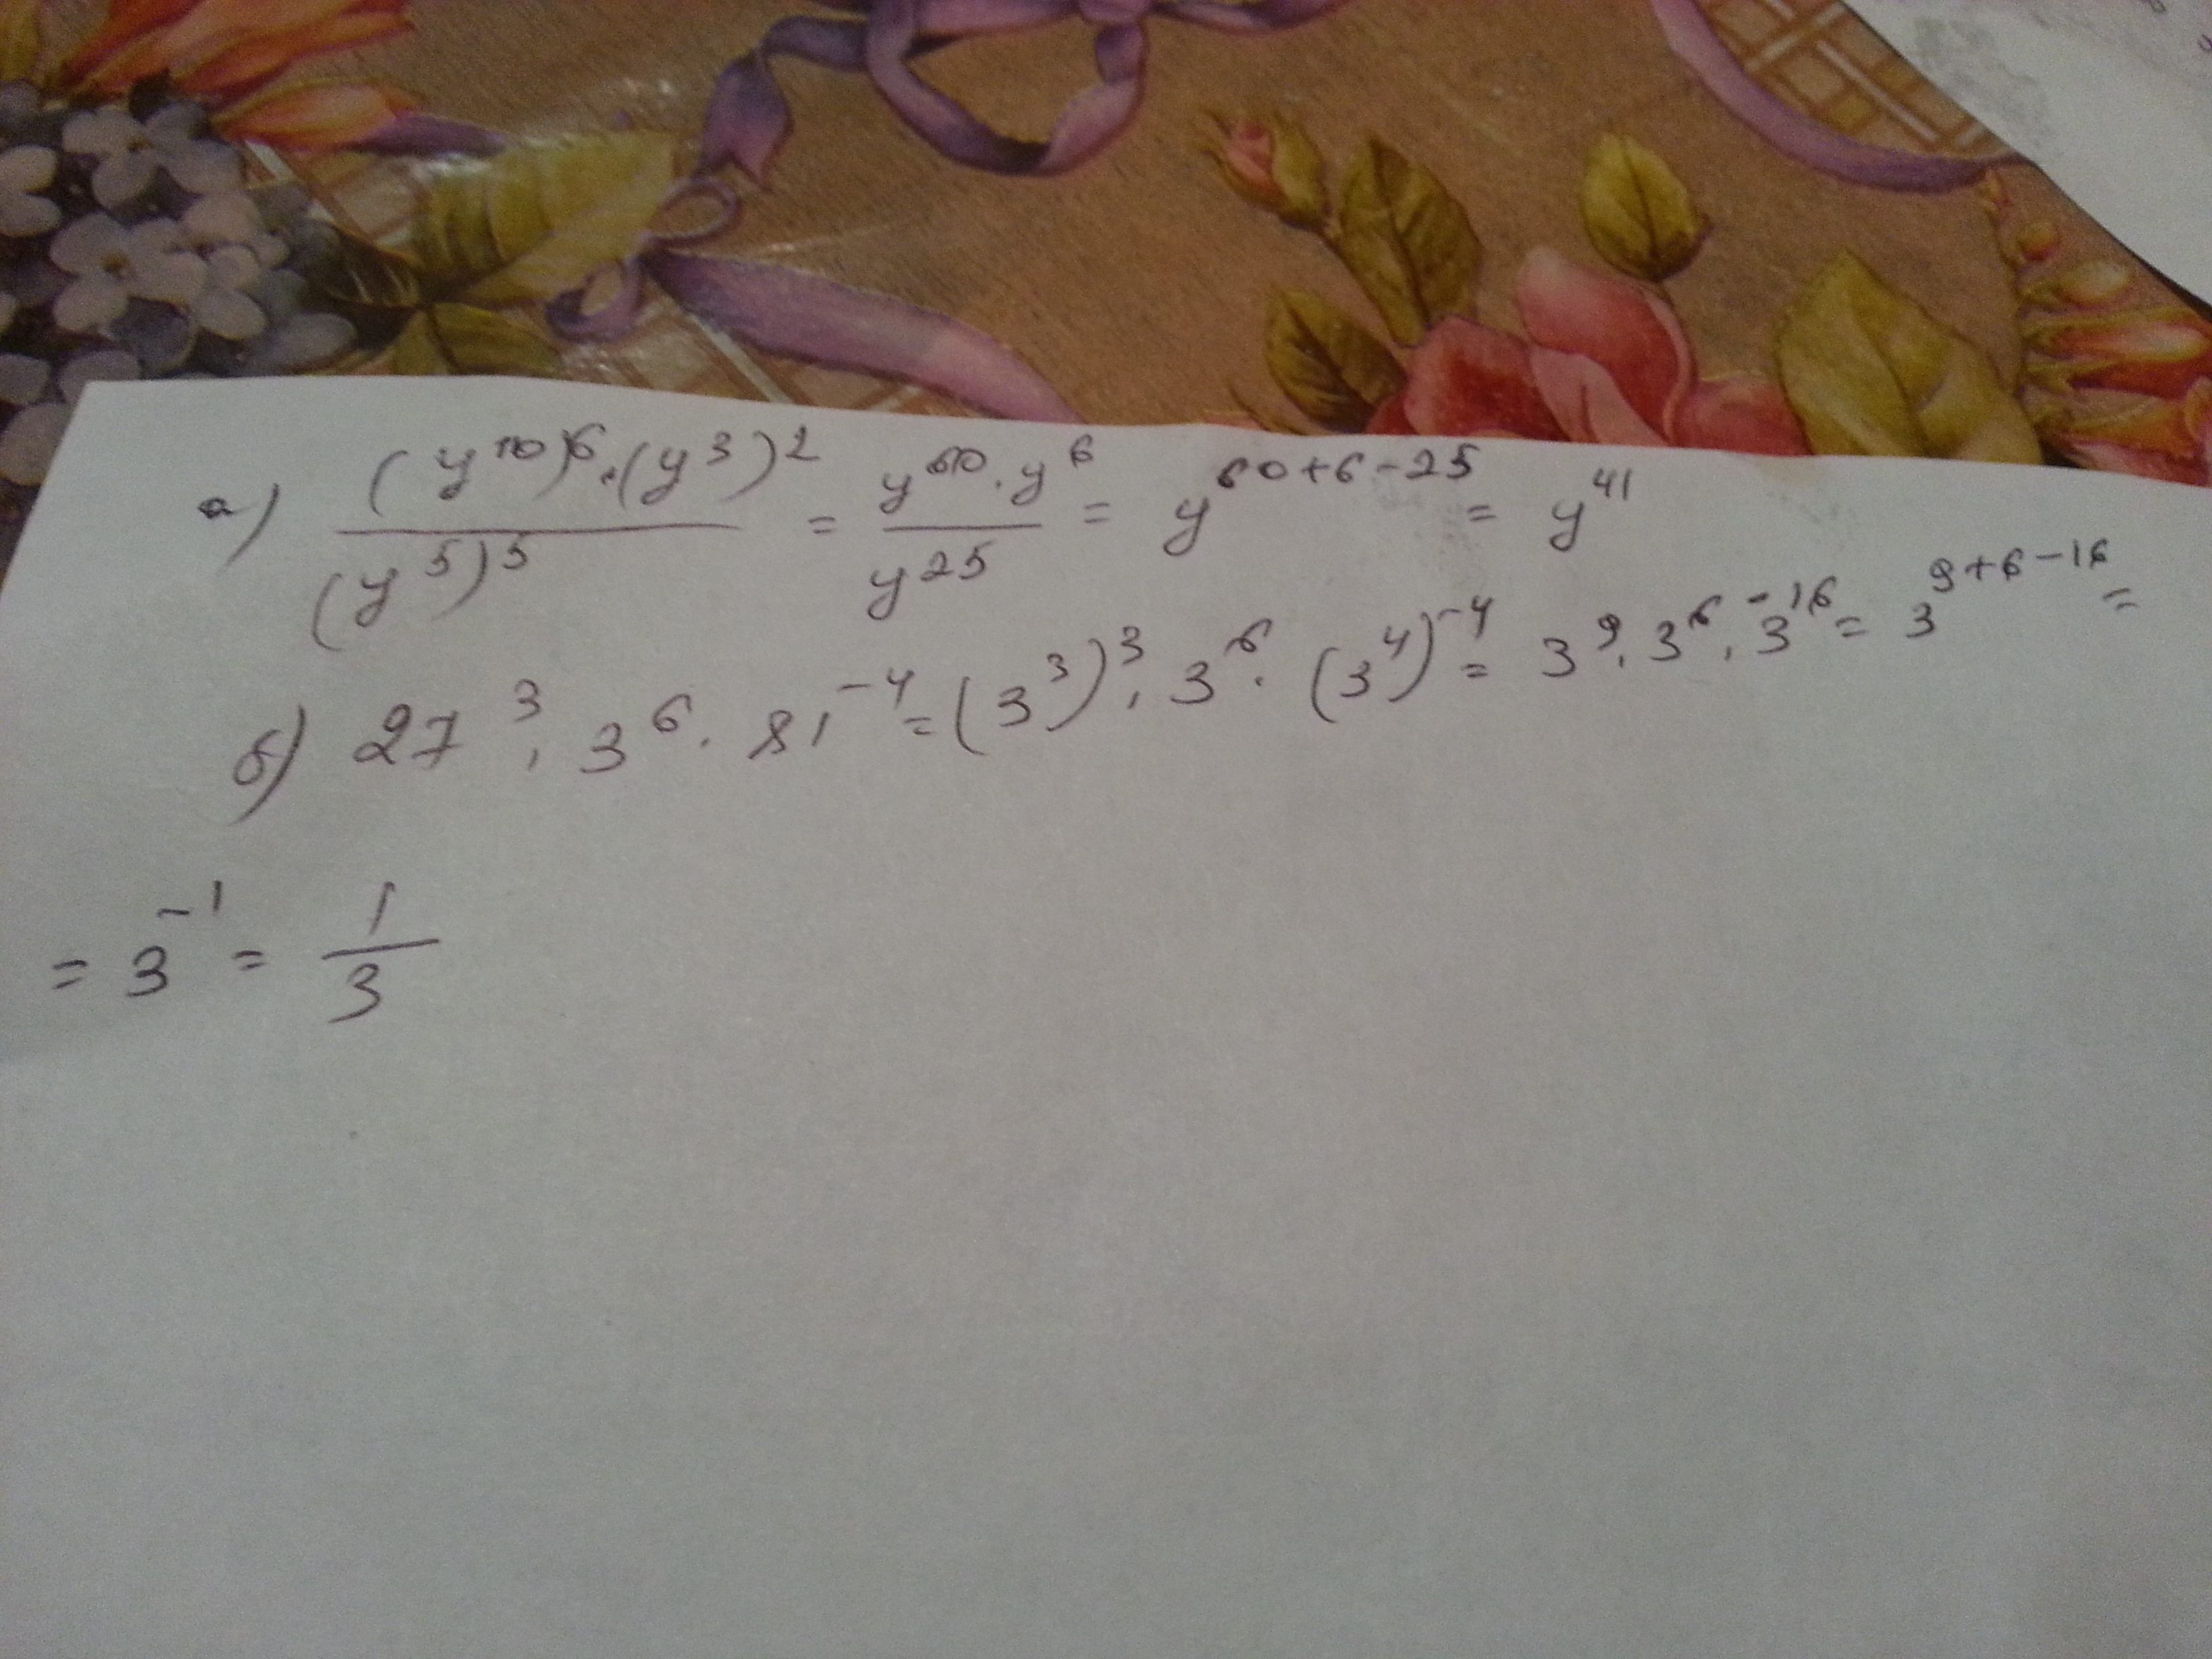 а) (y¹⁰)⁶·(y³)² / (y⁵)⁵ = y⁶⁰·y⁶ / y²⁵ = y⁶⁰⁺⁶⁻²⁵ = y⁴¹
б) 27³·3⁶·81⁻⁴ = (3³)³·3⁶·(3⁴)⁻⁴ = 3⁹·3⁶·3⁻¹⁶ = 3⁹⁺⁶⁻¹⁶ =
= 3⁻¹ = 1/3